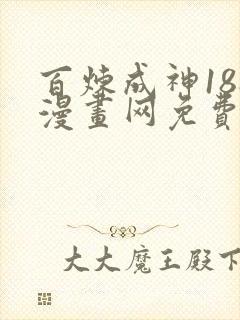 百炼成神18
漫畫网免費
大大魔王殿下